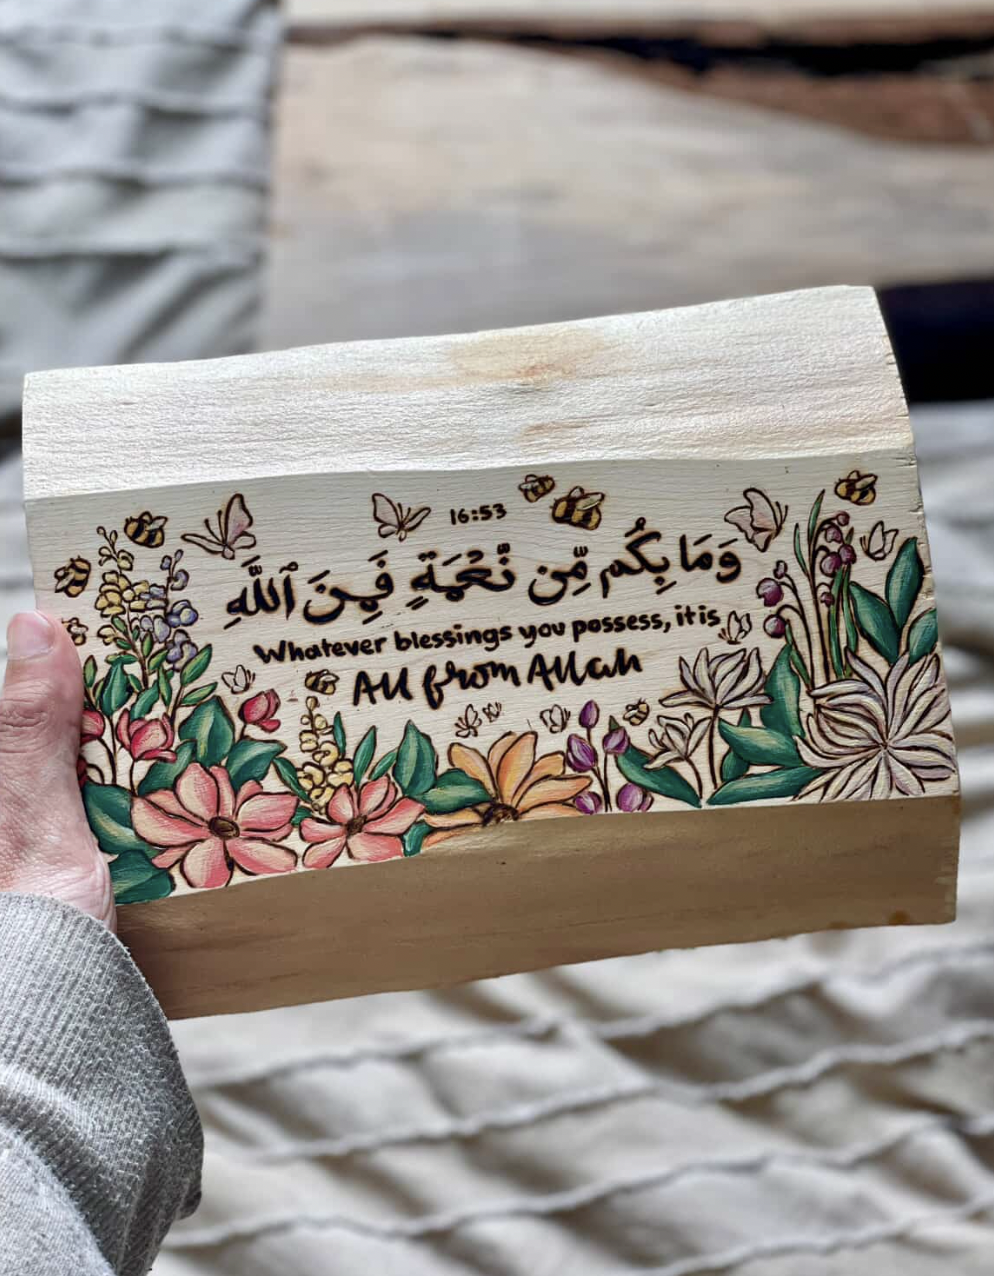 16:53
وَمَا بِكُم مِّن نِّعْمَةٍ فَمِنَ ٱللَّهِ
Whatever blessings you possess, it is
All from Allah